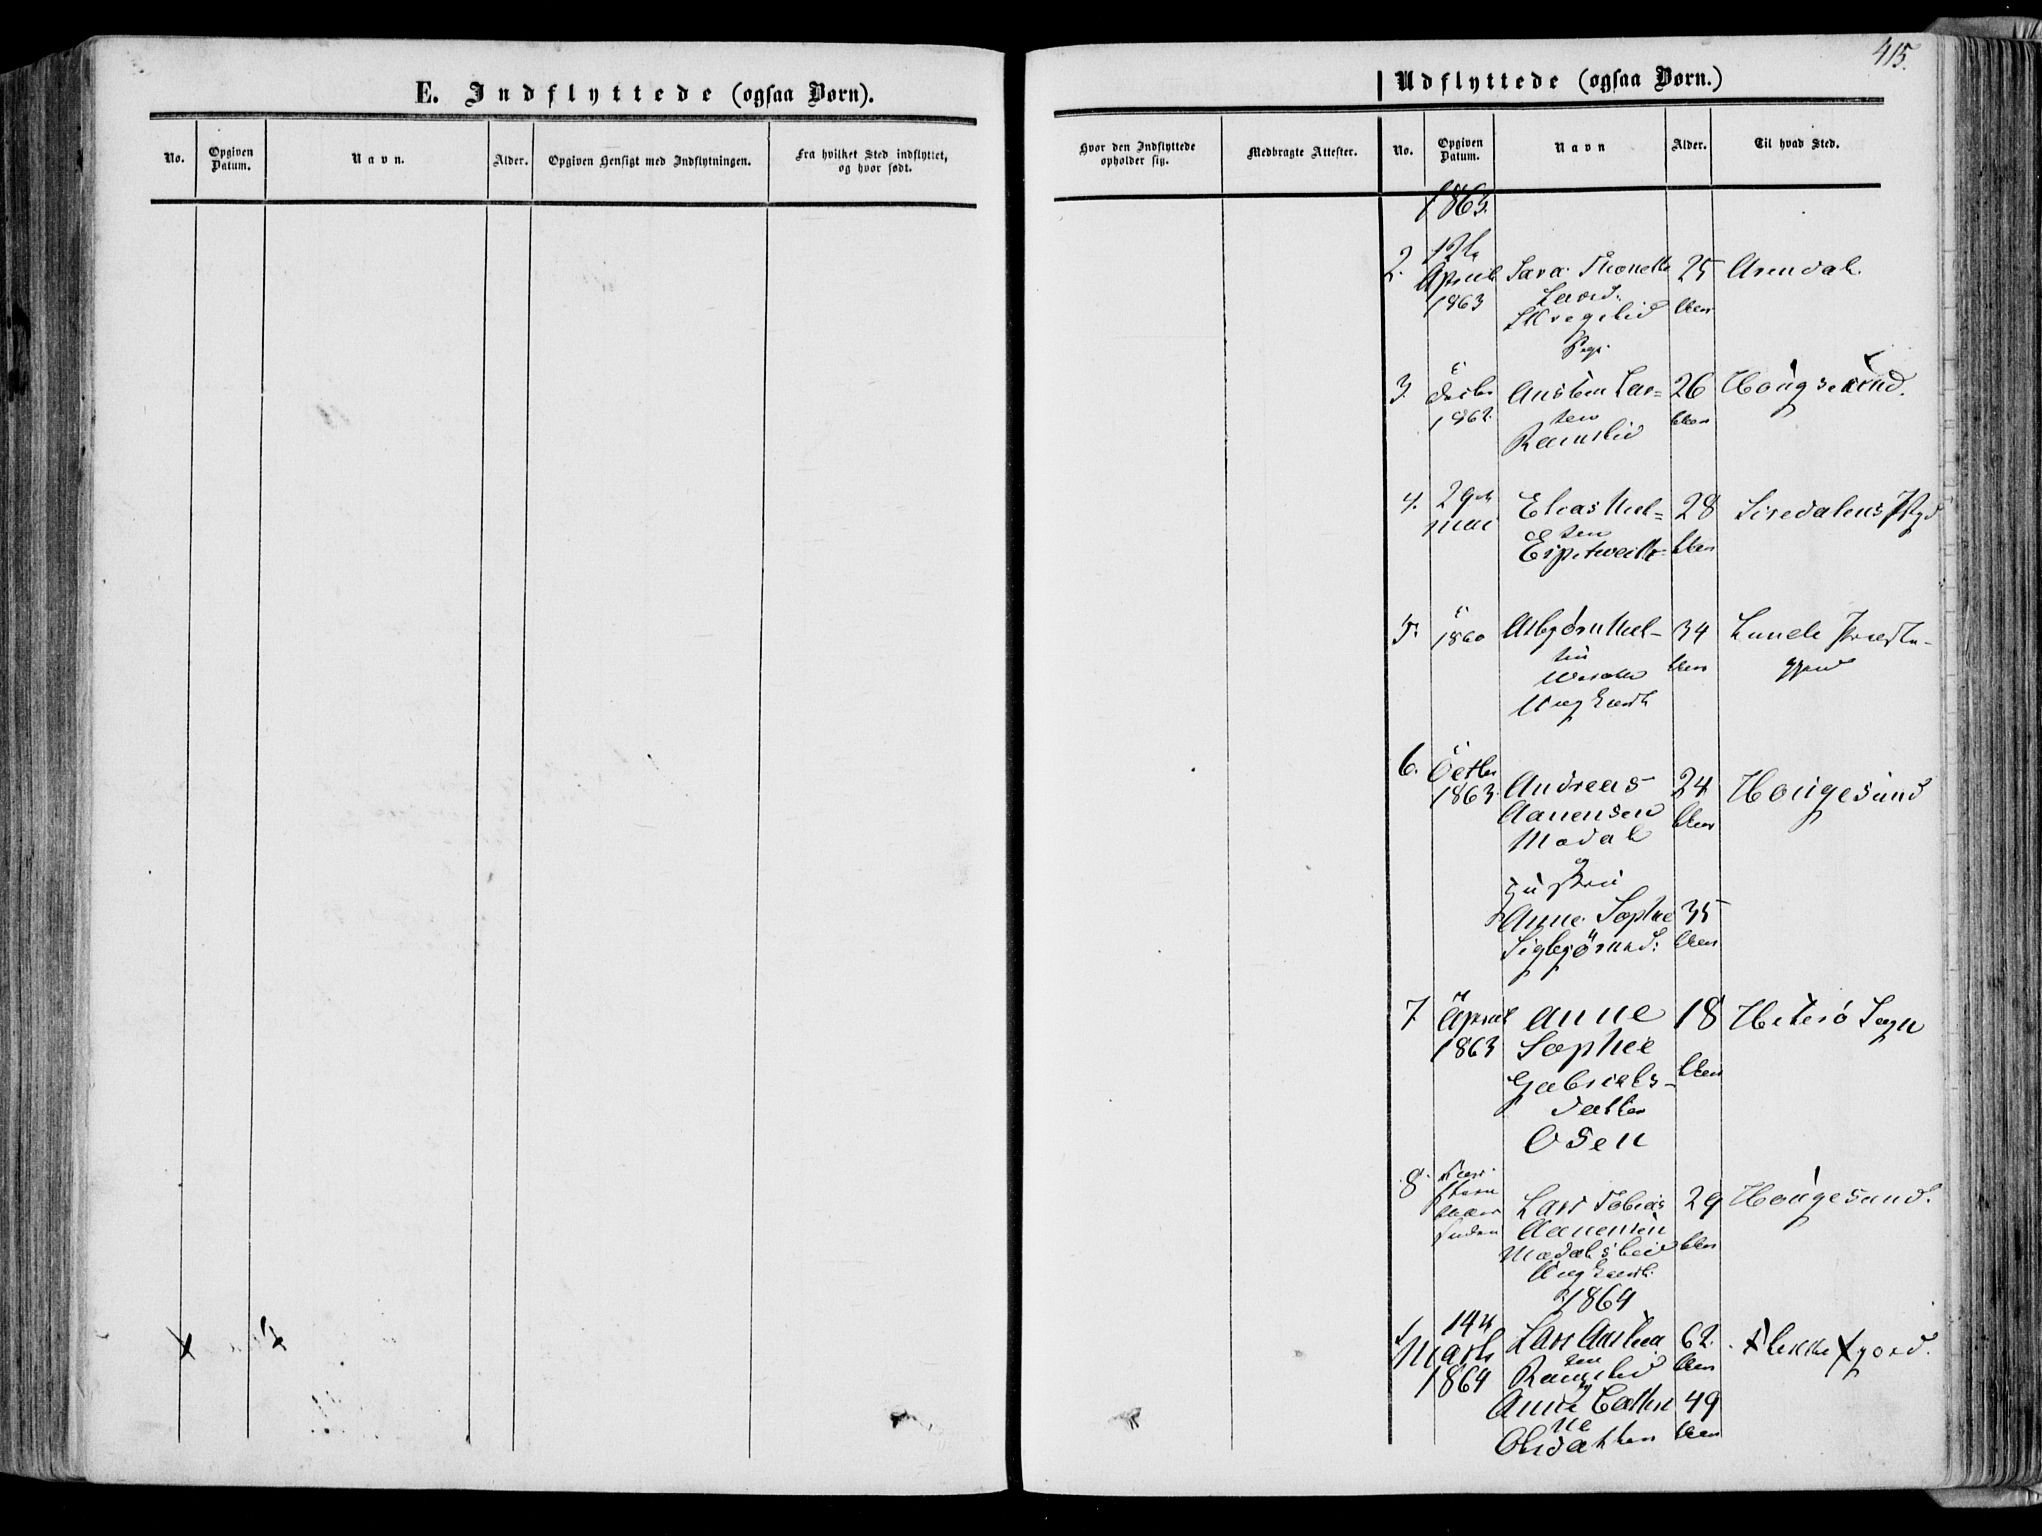 415.
E. Indflyttede (ogsaa Børn).
No.
Opgiven
Datum.
Navn.
Alder.
Opgiven Hensigt med Indflytningen.
Fra hvilket Sted indflyttet,
og hvor født.
Udflyttede (ogsaa Børn.)
Hvor den Indflyttede
opholder sig.
Medbragte Attester.
No.
Opgiven
Datum.
Navn
Alder.
Til hvad Sted.
1863.
2.
12te
April
1863
Sara Thonette
Larsd.
Pige
25
Aar
Arendal
3.
1862.
Austen Lar-
sen
Ramslid
26
Aar
Hougesund.
4.
29de
Mai
Elias Niel-
sen
Espetveidt
28
Aar
Siredalens Pgd
5.
1860
Asbjørn Niel-
sen
Ungkarl
34
Aar
Lunde Præste-
gjeld
6.
Octbr
1863.
Andreas
Aanensen
Modal
og
Hustru
Anne Sophie
Sigbjørnsd:
24
Aar
35
Aar
Hougesund
7.
April
1863
Anne
Sophie
Gabriels-
datter
Osen
18
Aar
Hiterø Sogn
8.
siden
Lars Tobias
Aanensen
Ungkarl.
29
Aar
Hougesund.
1864
1.
14de
Marts
1864
Lars Austen
sen
Ramslid
og
Anne Cathri
ne
Olsdatter
62.
Aar
49
Aar
Flekkefjord.